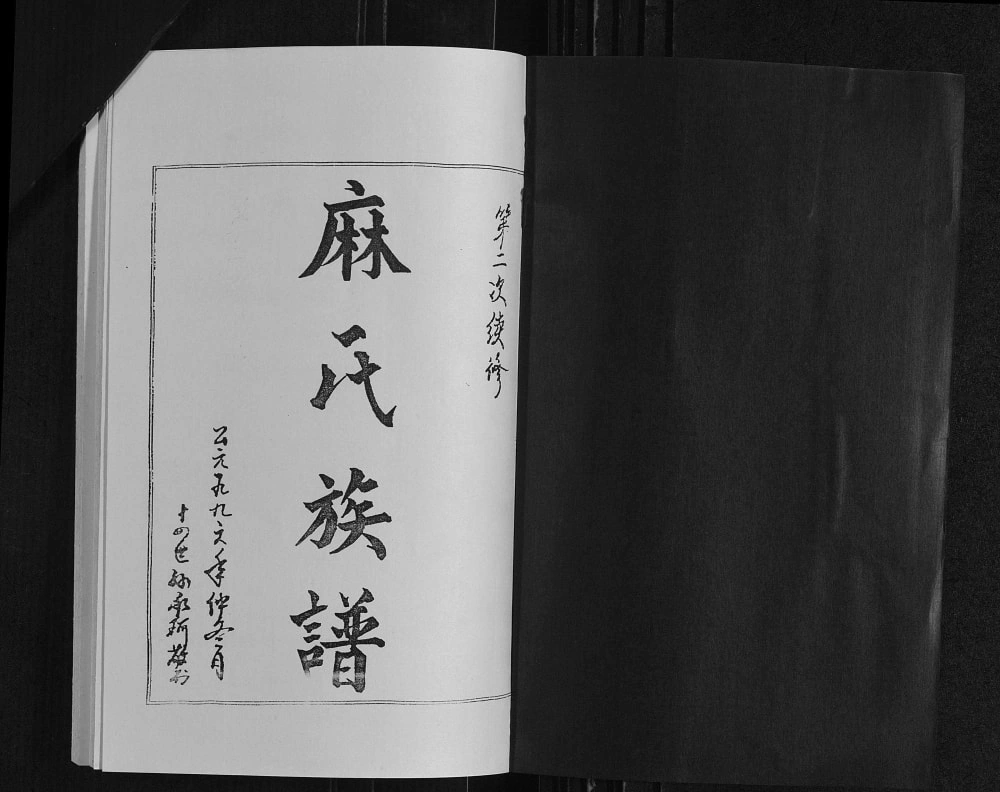 第二次續修
麻氏族譜
公元一九九六年仲冬月
十四世孫永珂敬